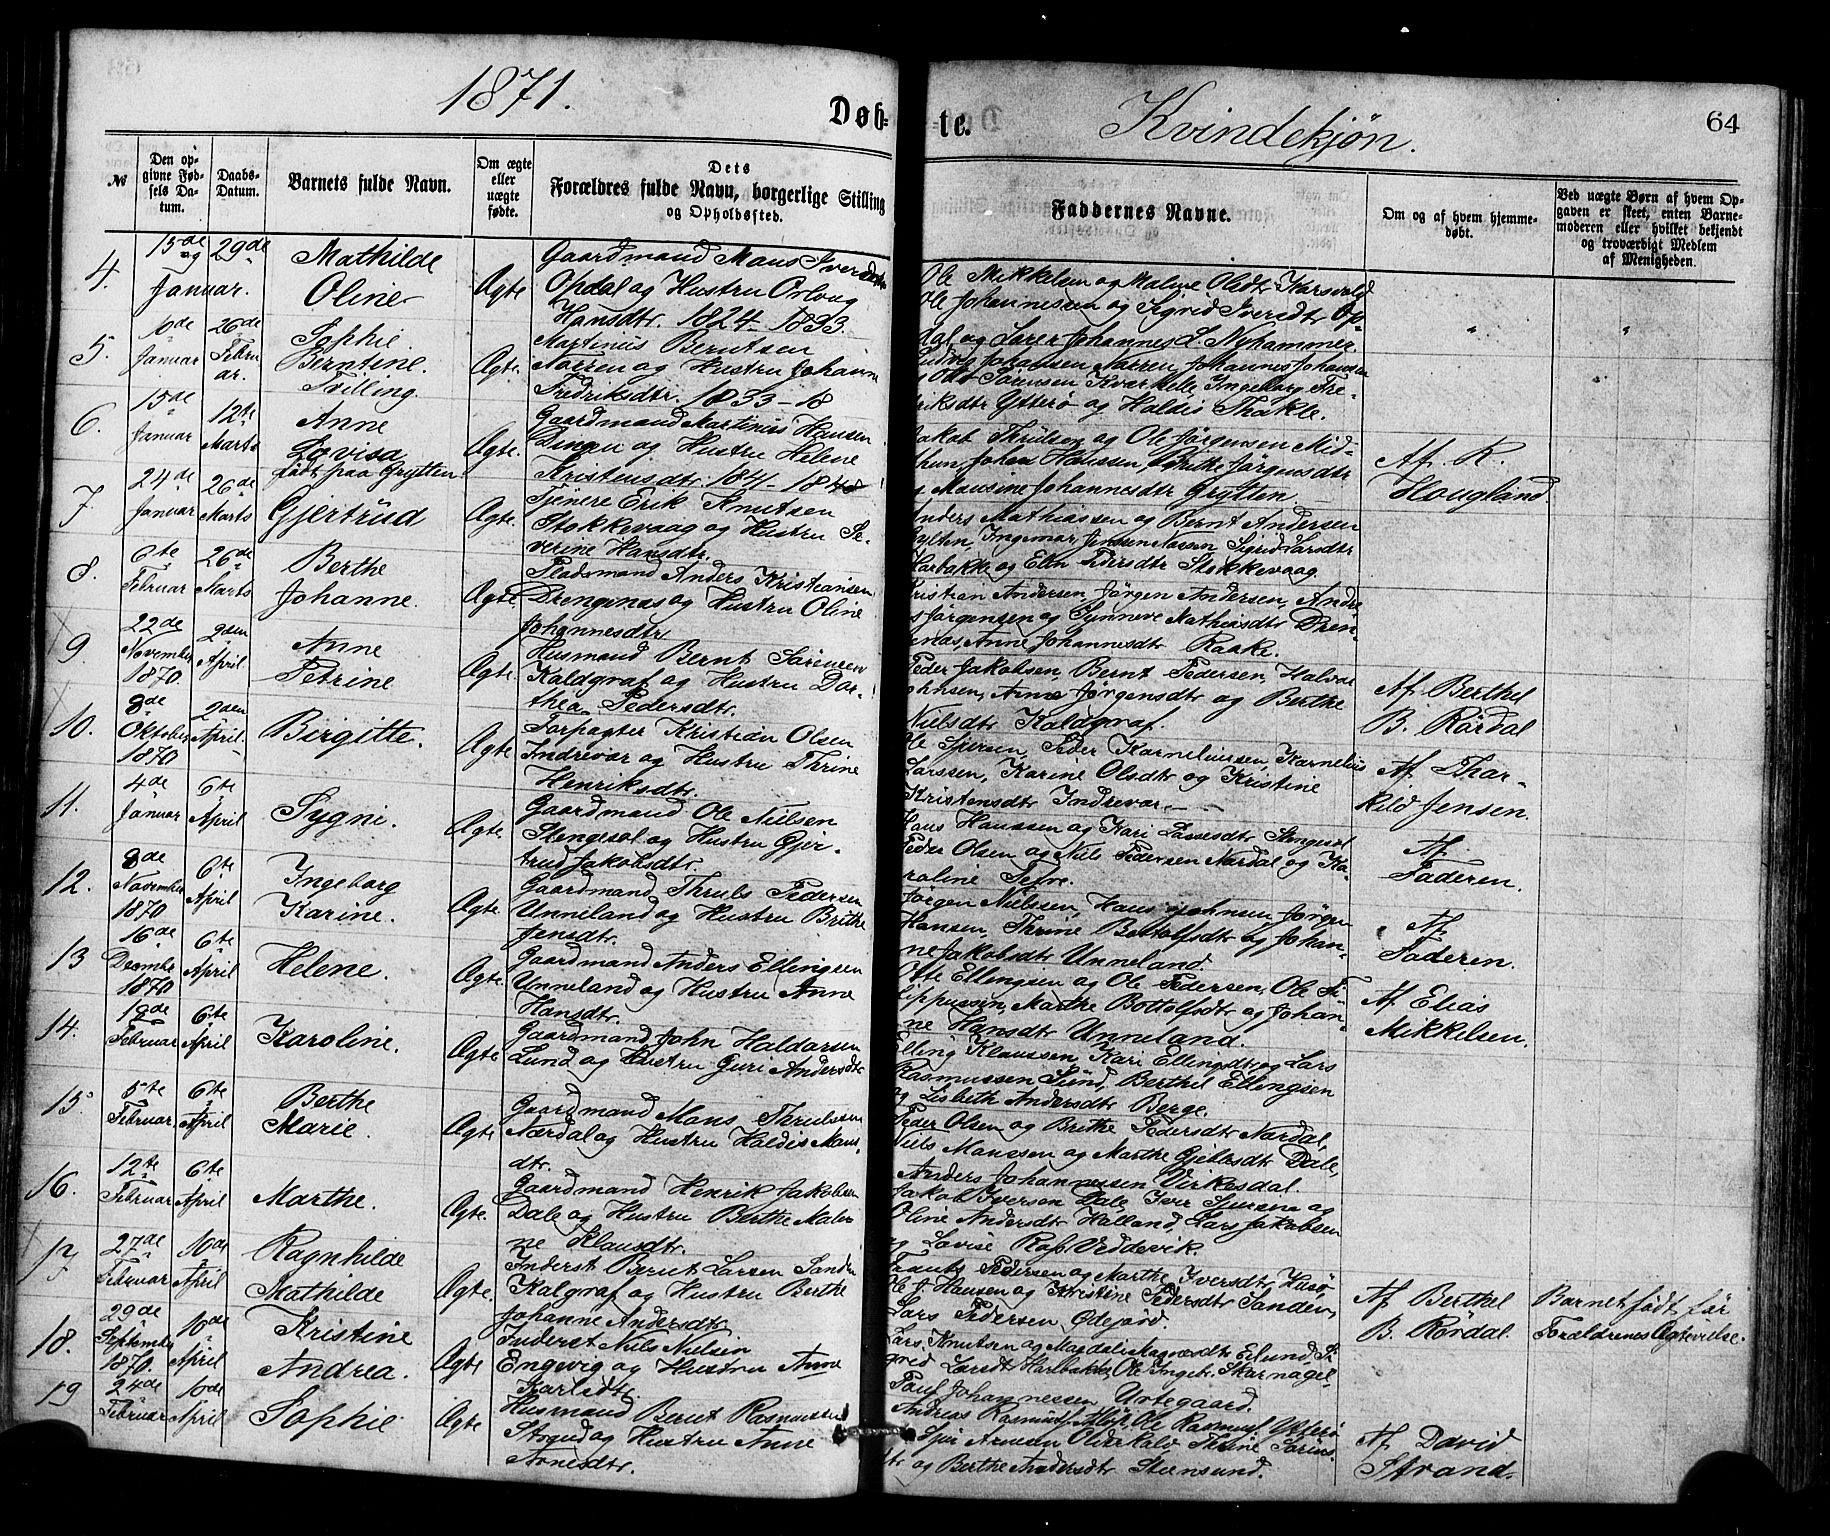 1871.
Døb-
te.
Kvindekjøn.
64
№
Den op-
givne Fød-
sels Da-
tum.
Daabs-
Datum.
Barnets fulde Navn.
Om ægte
eller
uægte
fødte.
Dets
Forældres fulde Navn, borgerlige Stilling
og Opholdssted.
Faddernes Navne.
Om og af hvem hjemme-
døbt.
Ved uægte Børn af hvem Op-
gaven er skeet, enten Barne-
moderen eller hvilket bekjendt
og troværdigt Medlem
af Menigheden.
4.
15de
Januar.
29de
Mathilde
Oline
Ægte
Gaardmand Mans Iversen
Opdal og Hustru Orlaug
Hansdtr. 1824-1833
Ole Mikkelsen og Maline Olsdtr Karsvold
Ole Johannesen og Sigrid Iversdtr Op-
dal og Lærer Johannes L. Nyhammer
5.
10de
Januar
26de
Febru
ar.
Sophie
Berntine
Tvilling
Ægte.
Martinus Berntsen
Nøeren og Hustru Johanne
Fredriksdtr. 1833-18
Ludvig Johansen Nøren Johannes Johansen
Ole Sørensen Kværhelle Ingeborg Fre-
driksdtr Ytterø og Haldis Thakle.
6.
15de
Januar
12te
Marts
Anne
Lovisa
født paa Grytten
Ægte.
Gaardmand Martinus Hansen
Dingen og Hustru Helene
Kristensdtr. 1841-1848
Jakob Thrulsen og Ole Jørgensen Mid-
thun, Johan Hanssen, Brithe Jørgensdtr
og Mausine Johannesdtr Grytten
Af K.
Hougland
7
24de
Januar
26de
Marts
Gjertrud
Ægte.
Tjenere Erik Knutsen
Stokkevaag og Hustru Se-
verine Hansdtr.
Anders Mathiassen og Bernt Andersen
Gylten, Ingemar Jenssen Nøssen, Sigrid Larsdtr
Harbakke og Elen Pedersdtr Stokkevaag
8.
6te
Februar
26de
Marts
Berthe
Johanne.
Ægte
Pladsmand Anders Kristiansen
Drengenæs og Hustru Oline
Johannesdtr
Kristian Andersen, Jørgen Andersen, Andre
as Jørgensen og Synneve Mathiasdtr Dren-
genæs, Anne Johannesdtr Raake.
9
22de
November
1870.
2den
April
Anne
Petrine
Ægte.
Husmand Bernt Sørensen
Kaldgraf og Hustru Dor-
thea Pedersdtr.
Peder Jakobsen, Bernt Pedersen, Halvor
Johnsen, Anne Jørgensdtr og Berthe
Nielsdtr Kaldgraf.
Af Berthel
B. Rørdal
10.
8de
Oktober
1870
2den
April.
Birgitte.
Ægte
Forpagter Kristian Olsen
Indrevær og Hustru Thrine
Henriksdtr.
Ole Sjursen, Peder Karneliussen, Karnelius
Larssen, Karine Olsdtr og Kristine
Kristensdtr Indrevær.
Af Thor-
kild Jensen.
11.
4de
Januar
6te
April
Sygni.
Ægte.
Gaardmand Ole Nielsen
Stengesøl og Hustru Gjer-
trud Jakobsdtr.
Hans Hanssen og Kari Lassesdtr Stengesøl
Peder Olsen og Niels Pedersen Nørdal og Ka-
roline Sefre.
Af
Faderen.
12.
8de
November
1870
6te
April
Ingeborg
Karine.
Ægte.
Gaardmand Thruls Pedersen
Unneland og Hustru Brithe
Jensdtr.
Jørgen Nielssen, Hans Johnsen Jørgen
Hansen, Thrine Bottolfsdtr og Johan-
ne Jakobsdtr Unneland.
Af
Faderen.
13
16de
Decembe
1870
6te
April
Helene.
Ægte.
Gaardmand Anders Ellingsen
Unneland og Hustru Anne
Hansdtr.
Otte Ellengsen og Ole Pedersen, Ole Fi-
lippussen, Marthe Bottolfsdtr og Johan-
ne Hansdtr Unneland.
Af Elias
Mikkelsen.
14.
19de
Februar
6te
April
Karoline.
Ægte
Gaardmand John Haldorsen
Lund og Hustru Guri Andersdtr
Elling Klaussen, Kari Ellingsdtr og Lars
Rasmussen Lund, Berthel Ellingsen
og Lisbeth Andersdtr Berge.
15
5te
Februar
6te
April
Berthe
Marie.
Ægte
Gaardmand Mons Thrulssen
Nørdal og Hustru Haldis Mons
dtr.
Peder Olsen og Brithe Pedersdtr Nørdal,
Niels Monssen og Marthe Gjertsdtr Dale,
Anders Johannessen Virkesdal.
16.
12te
Februar
6te
April
Marthe.
Ægte.
Gaardmand Henrik Jakobsen
Dale og Hustru Berthe Mali-
ne Klausdtr.
Jakob Iversen Dale Iver Sjursen og
Oline Andersdtr Halland, Lars Jakobsen
og Lovise Rafs Veddevik.
17
27de
Februar
10de
April
Ragnhilde
Mathilde
Ægte.
Inderst Bernt Larsen Sanden
Kalgraf og Hustru Berthe
Johanne Andersdtr.
Frants Pedersen og Marthe Iversdtr Husø,
Ole J. Hansen og Kristine Pedersdtr Sanden,
Lars Pedersen Ødejord.
Af Berthel
B. Rørdal.
Barnet født før
Forældrenes Ægtevielse.
18.
29de
September
1870.
10de
April
Kristine
Andrea.
Ægte
Inderst Niels Nielsen
Engevig og Hustru Anne
Karlsdtr.
Lars Knutsen og Magdali Magnesdtr Eilund, Si-
grid Larsdt Harbakke, Ole Ingebr. Skarnagel-
Paul Johannessen Urtegaard.
19
24de
Februar
10de
April
Sophie
Ægte
Husmand Bernt Rasmussen
Strand og Hustru Anne
Arnesdtr.
Andreas Rasmus. Alløg, Ole Rasmus. Ytterø
Sjur Arnesen Olderkald, Thrine Sørens-
dtr og Berthe Andersdtr Steensund.
Af David
Strand.